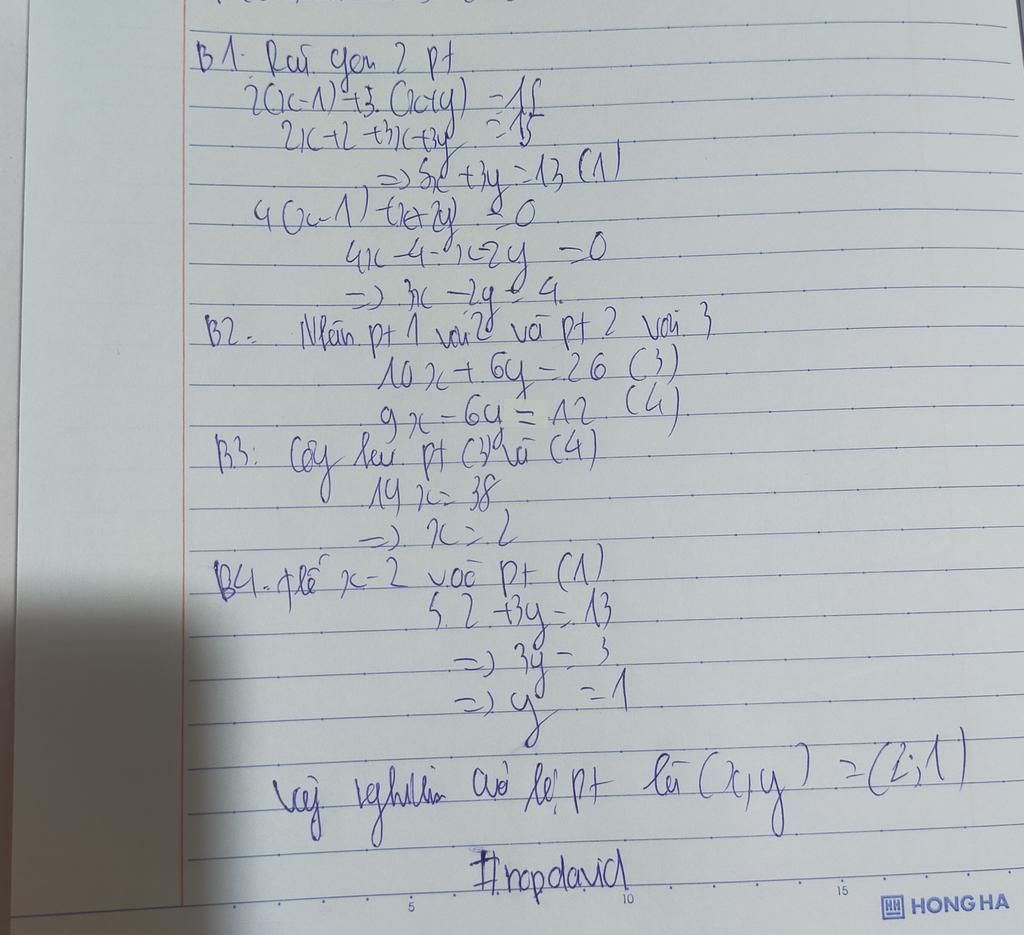 B1. Rút gọn 2 pt
2(x-1)+3.(x+y) =15
2x+2+3x+3y =15
=> 5x+3y=13 (1)
4(x-1)-(x+2y)=0
4x-4-x-2y =0
=> 3x-2y=4.
B2. Nhân pt 1 với 2 và pt 2 với 3
10x+6y=26 (3)
9x-6y=12 (4)
B3: Cộng pt (3) và (4)
19x=38
=> x=2
B4. thế x=2 vào pt (1)
5.2+3y=13
=> 3y=3
=> y =1
Vậy nghiệm của hệ pt là (x,y)=(2;1)
#nopdavid
5 10 15
HONG HA